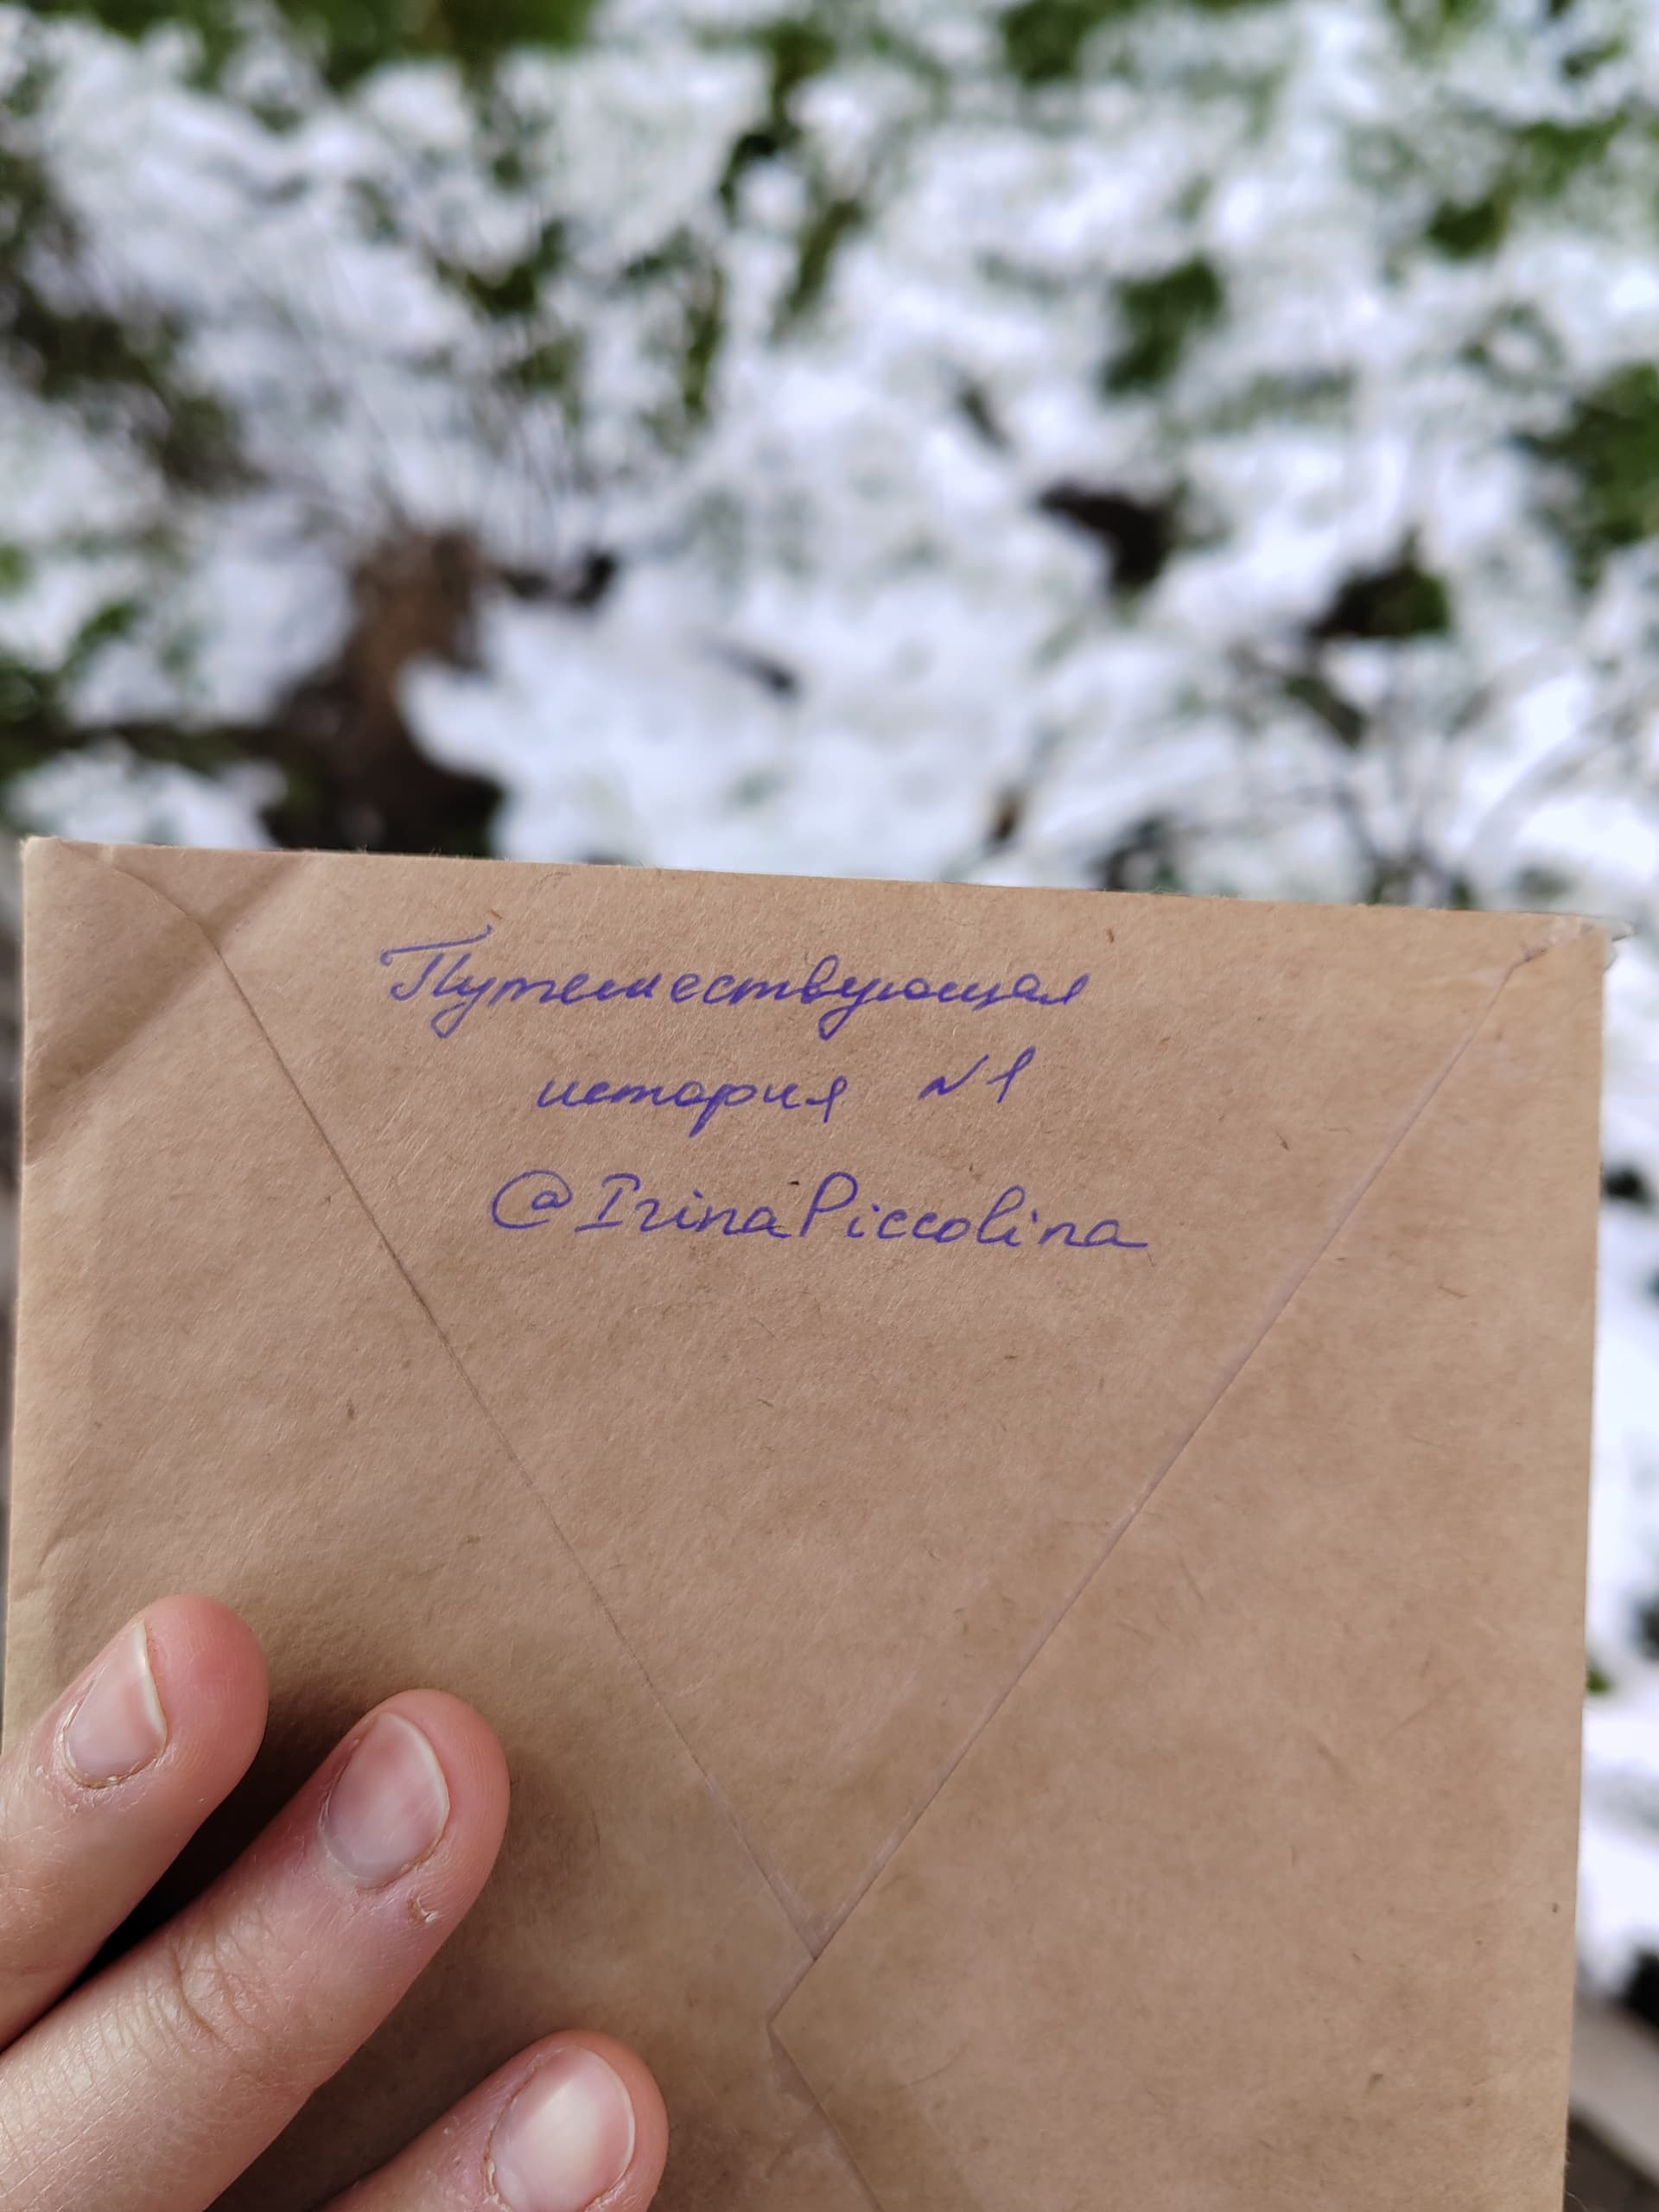 Путешествующая
история №1
@IrinaPiccolina